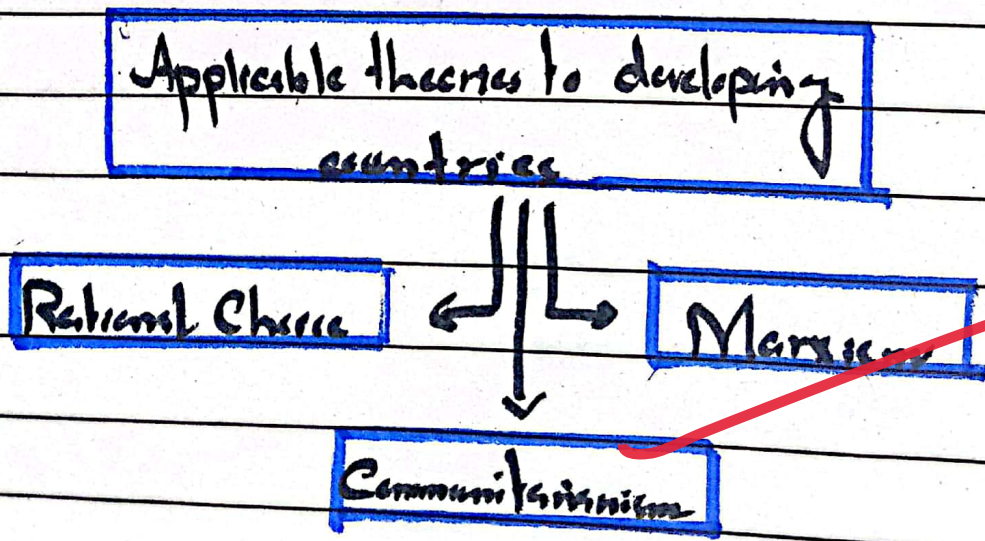 Applicable theories to developing
countries
Rational Choice
Marxism
Communitarianism